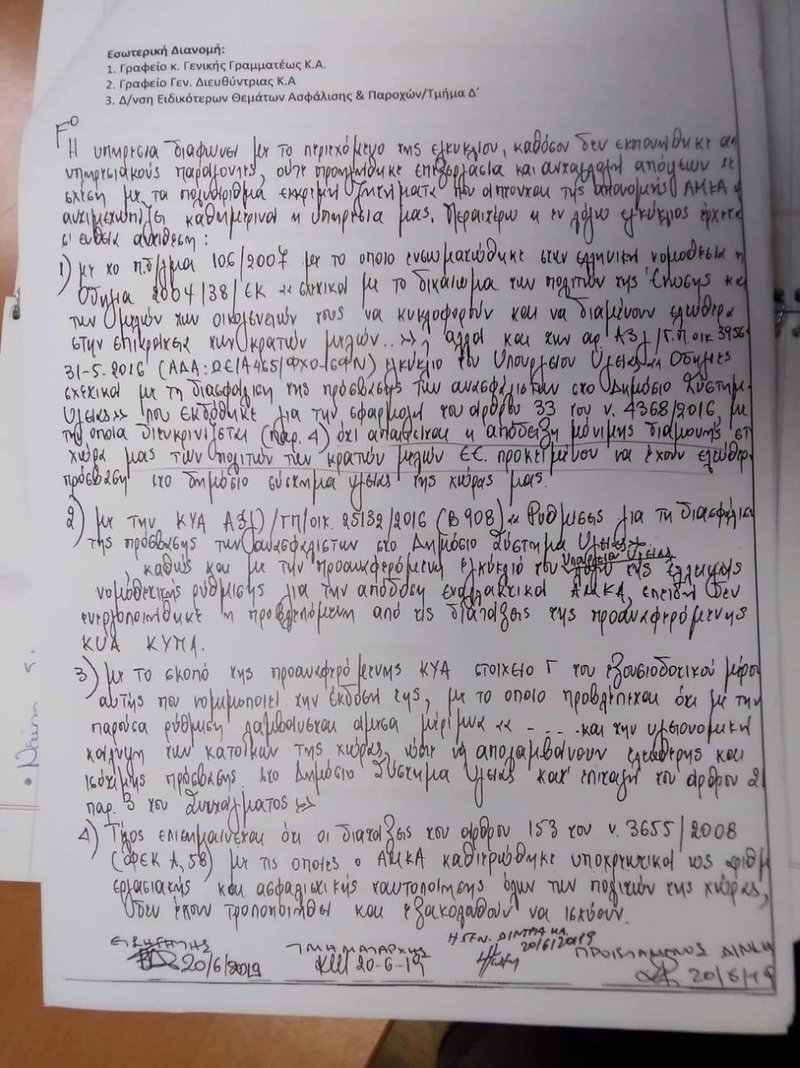 Εσωτερική Διανομή:
1. Γραφείο κ. Γενικής Γραμματέως Κ.Α.
2. Γραφείο Γεν. Διευθύντριας Κ.Α
3. Δ/νση Ειδικότερων Θεμάτων Ασφάλισης & Παροχών/Τμήμα Δ΄
Η υπηρεσία διαφωνεί με το περιεχόμενο της εγκυκλίου, καθόσον δεν εκπονήθηκε
υπηρεσιακούς παράγοντες, ούτε προηγήθηκε επεξεργασία και ανταλλαγή απόψεων
σχέση με τα πολυάριθμα εκκρεμή ζητήματα που άπτονται της απονομής ΑΜΚΑ
αντιμετωπίζει καθημερινά η υπηρεσία μας. Περαιτέρω η εν λόγω εγκύκλιος έρχεται
σ' ευθεία αντίθεση:
1) με το π.δ/γμα 106/2007 με το οποίο ενσωματώθηκε στην ελληνική νομοθεσία η
Οδηγία 2004/38/ΕΚ «σχετικά με το δικαίωμα των πολιτών της Ένωσης και
των μελών των οικογενειών τους να κυκλοφορούν και να διαμένουν ελεύθερα
στην επικράτεια των κρατών μελών..», αλλά και την αρ. Α3γ/Γ.Π.οικ 3956
31-5-2016 εγκύκλιο του Υπουργείου Υγείας «Οδηγίες
σχετικά με τη διασφάλιση της πρόσβασης των ανασφάλιστων στο Δημόσιο Σύστημα
Υγείας» που εκδόθηκε για την εφαρμογή του άρθρου 33 του ν. 4368/2016, με
την οποία διευκρινίζεται (παρ. 4) ότι απαιτείται η απόδειξη μόνιμης διαμονής στη
χώρα μας των πολιτών των κρατών μελών Ε.Ε. προκειμένου να έχουν ελεύθερη
πρόσβαση στο δημόσιο σύστημα υγείας της χώρας μας.
2) με την ΚΥΑ Α3(γ)/ΓΠ/οικ. 25132/2016 (Β 908) «Ρυθμίσεις για τη διασφάλιση
της πρόσβασης των ανασφάλιστων στο Δημόσιο Σύστημα Υγείας»
καθώς και με την προαναφερόμενη εγκύκλιο του Υπουργείου Υγείας λόγω της έλλειψης
νομοθετικής ρύθμισης για την απόδοση εναλλακτικά ΑΜΚΑ, επειδή δεν
ενεργοποιήθηκε η προβλεπόμενη από τις διατάξεις της προαναφερόμενης
ΚΥΑ ΚΥΠΑ.
3) με το σκοπό της προαναφερόμενης ΚΥΑ στοιχείο Γ του εξουσιοδοτικού μέρους
αυτής που νομιμοποιεί την έκδοσή της, με το οποίο προβλέπεται ότι με την
παρούσα ρύθμιση λαμβάνεται άμεσα μέριμνα «.... και την υγειονομική
κάλυψη των κατοίκων της χώρας, ώστε να απολαμβάνουν ελεύθερης και
ισότιμης πρόσβασης στο Δημόσιο Σύστημα Υγείας κατ' επιταγή του άρθρου 2
παρ. 3 του Συντάγματος»
4) Τέλος επισημαίνεται ότι οι διατάξεις του άρθρου 153 του ν. 3655/2008
(ΦΕΚ Α, 58) με τις οποίες ο ΑΜΚΑ καθιερώθηκε υποχρεωτικά ως αριθμ
εργασιακής και ασφαλιστικής ταυτοποίησης όλων των πολιτών της χώρας,
δεν έχουν τροποποιηθεί και εξακολουθούν να ισχύουν.
ΕΙΣΗΓΗΤΗΣ ΤΜΗΜΑΤΑΡΧΗΣ Η ΓΕΝ. ΔΙΝΤΡΙΑ ΚΑ. ΠΡΟΙΣΤΑΜΕΝΟΣ Δ/ΝΣΗ
20/6/2019 20-6-19 20/6/2019 20/6/19